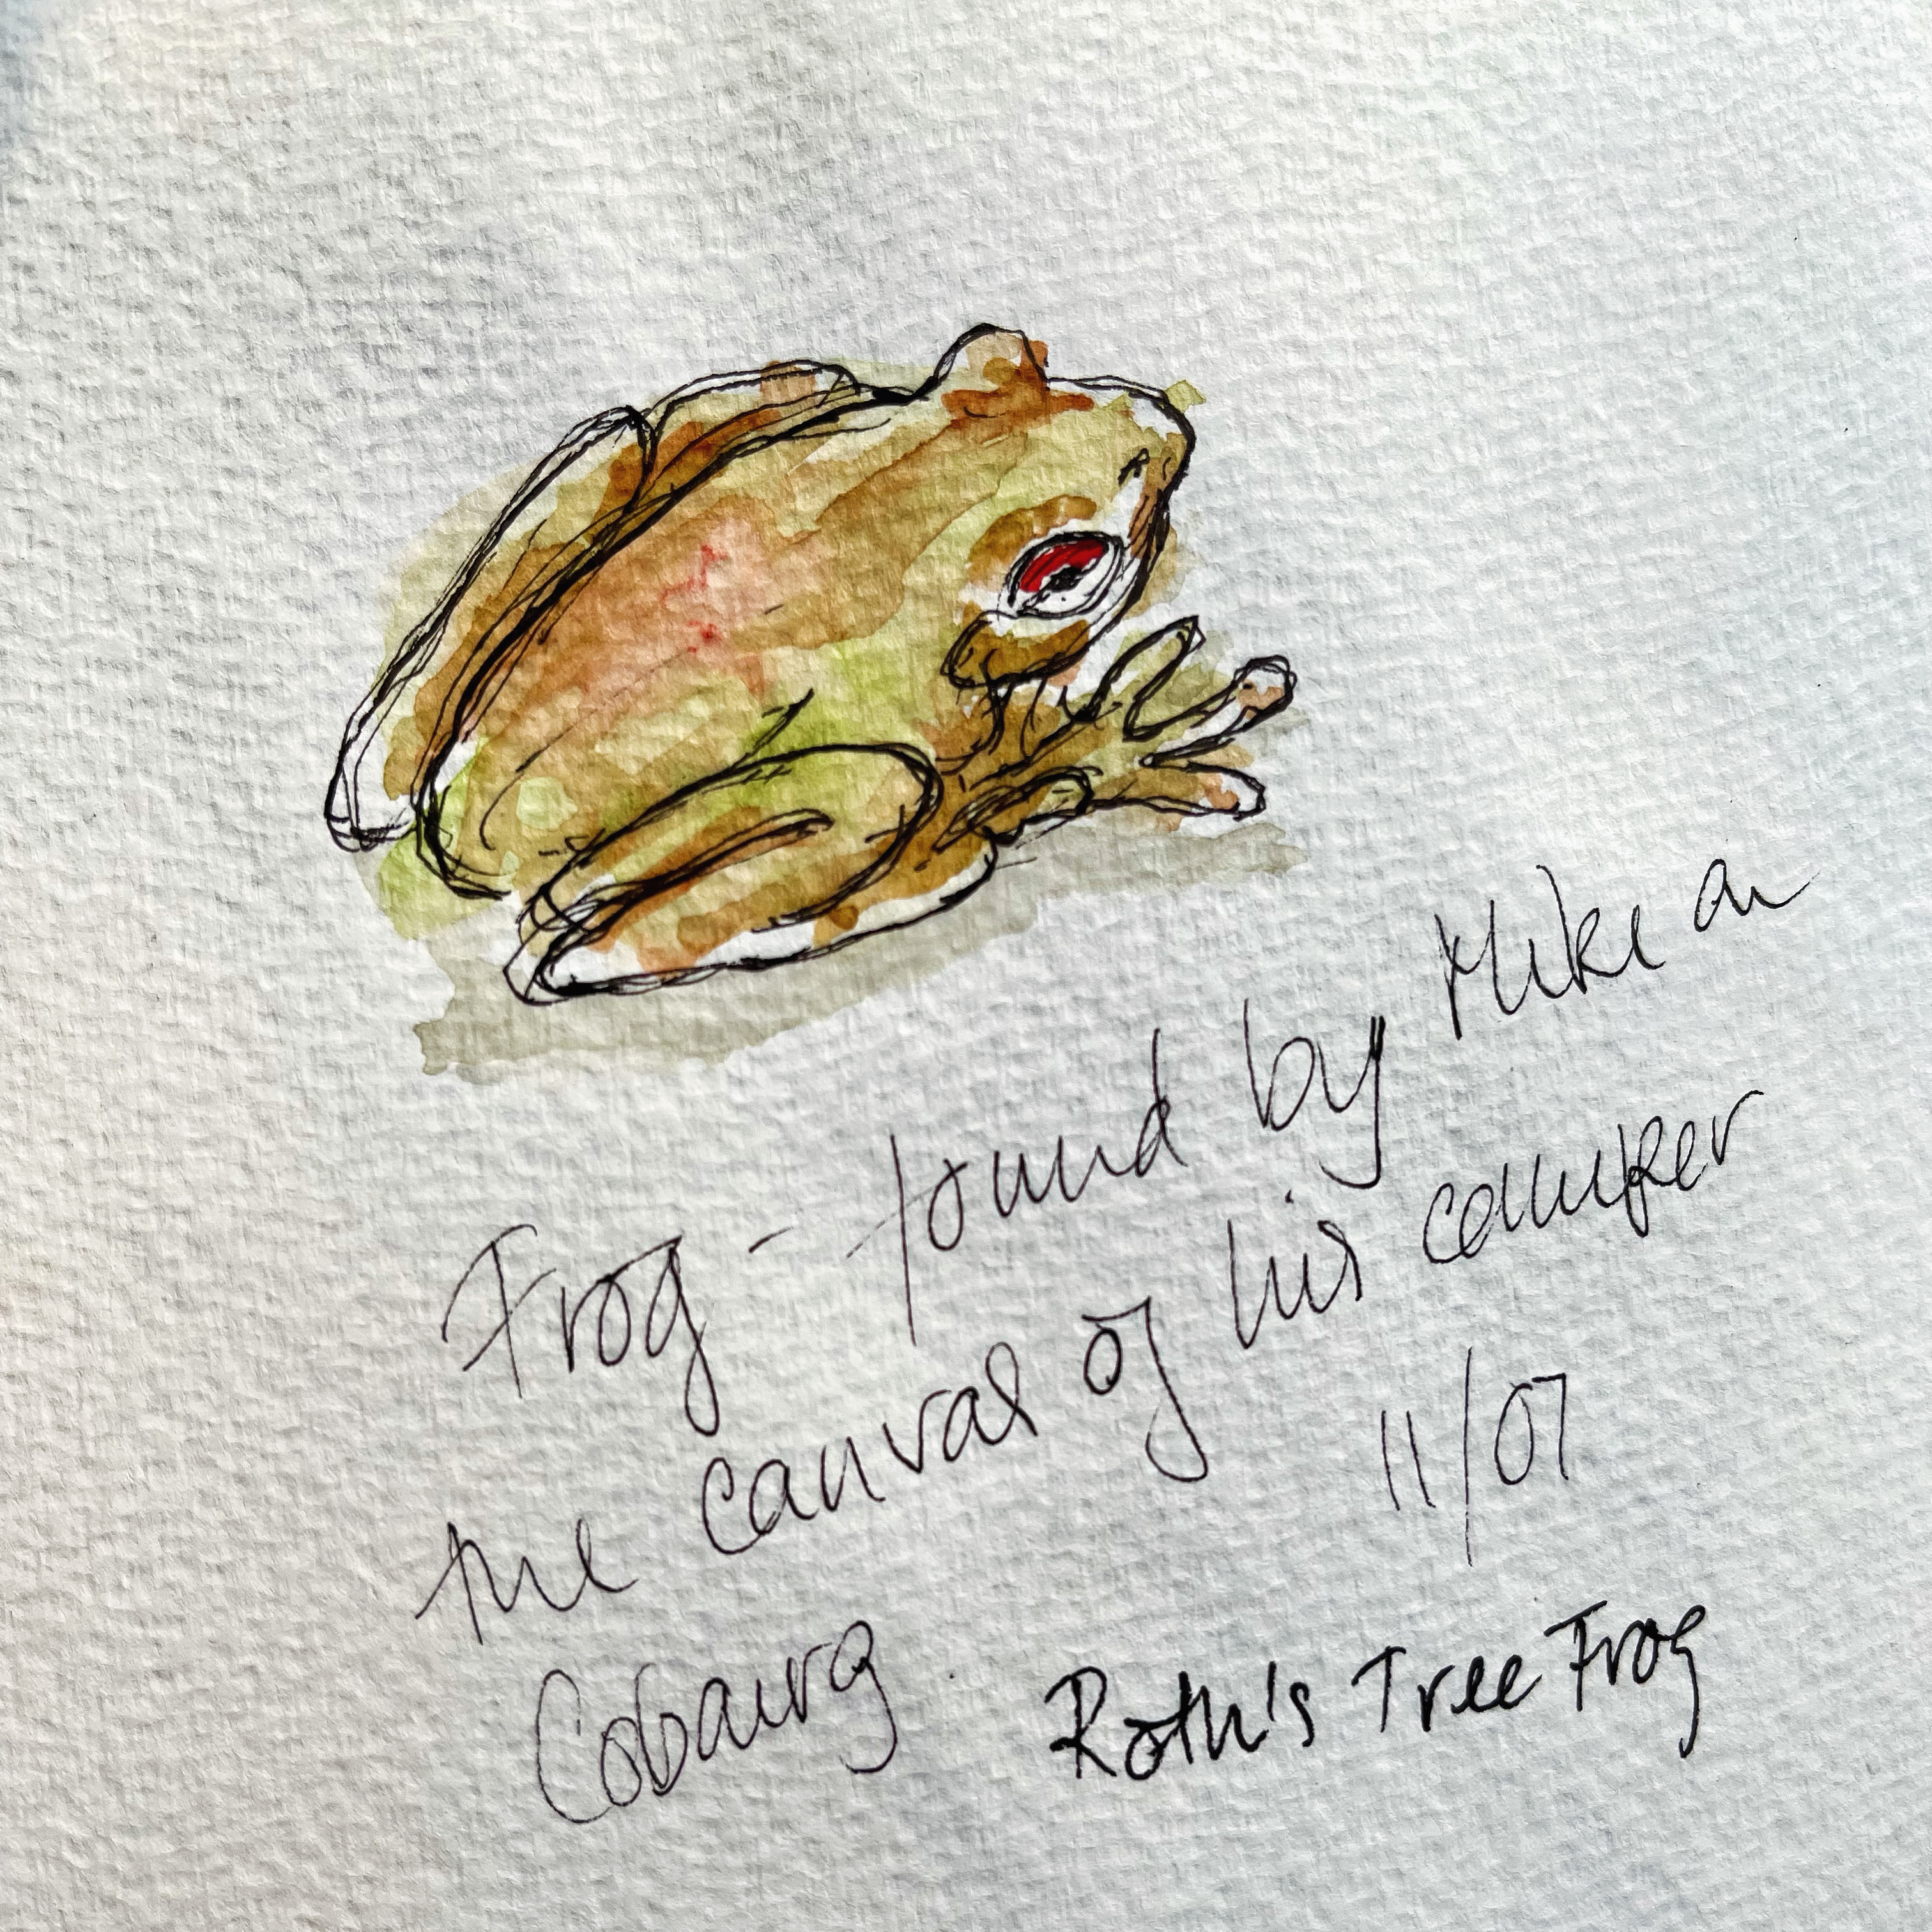 Frog - found by Mike on
the canvas of his camper
11/07
Cobourg.
Roth's Tree Frog